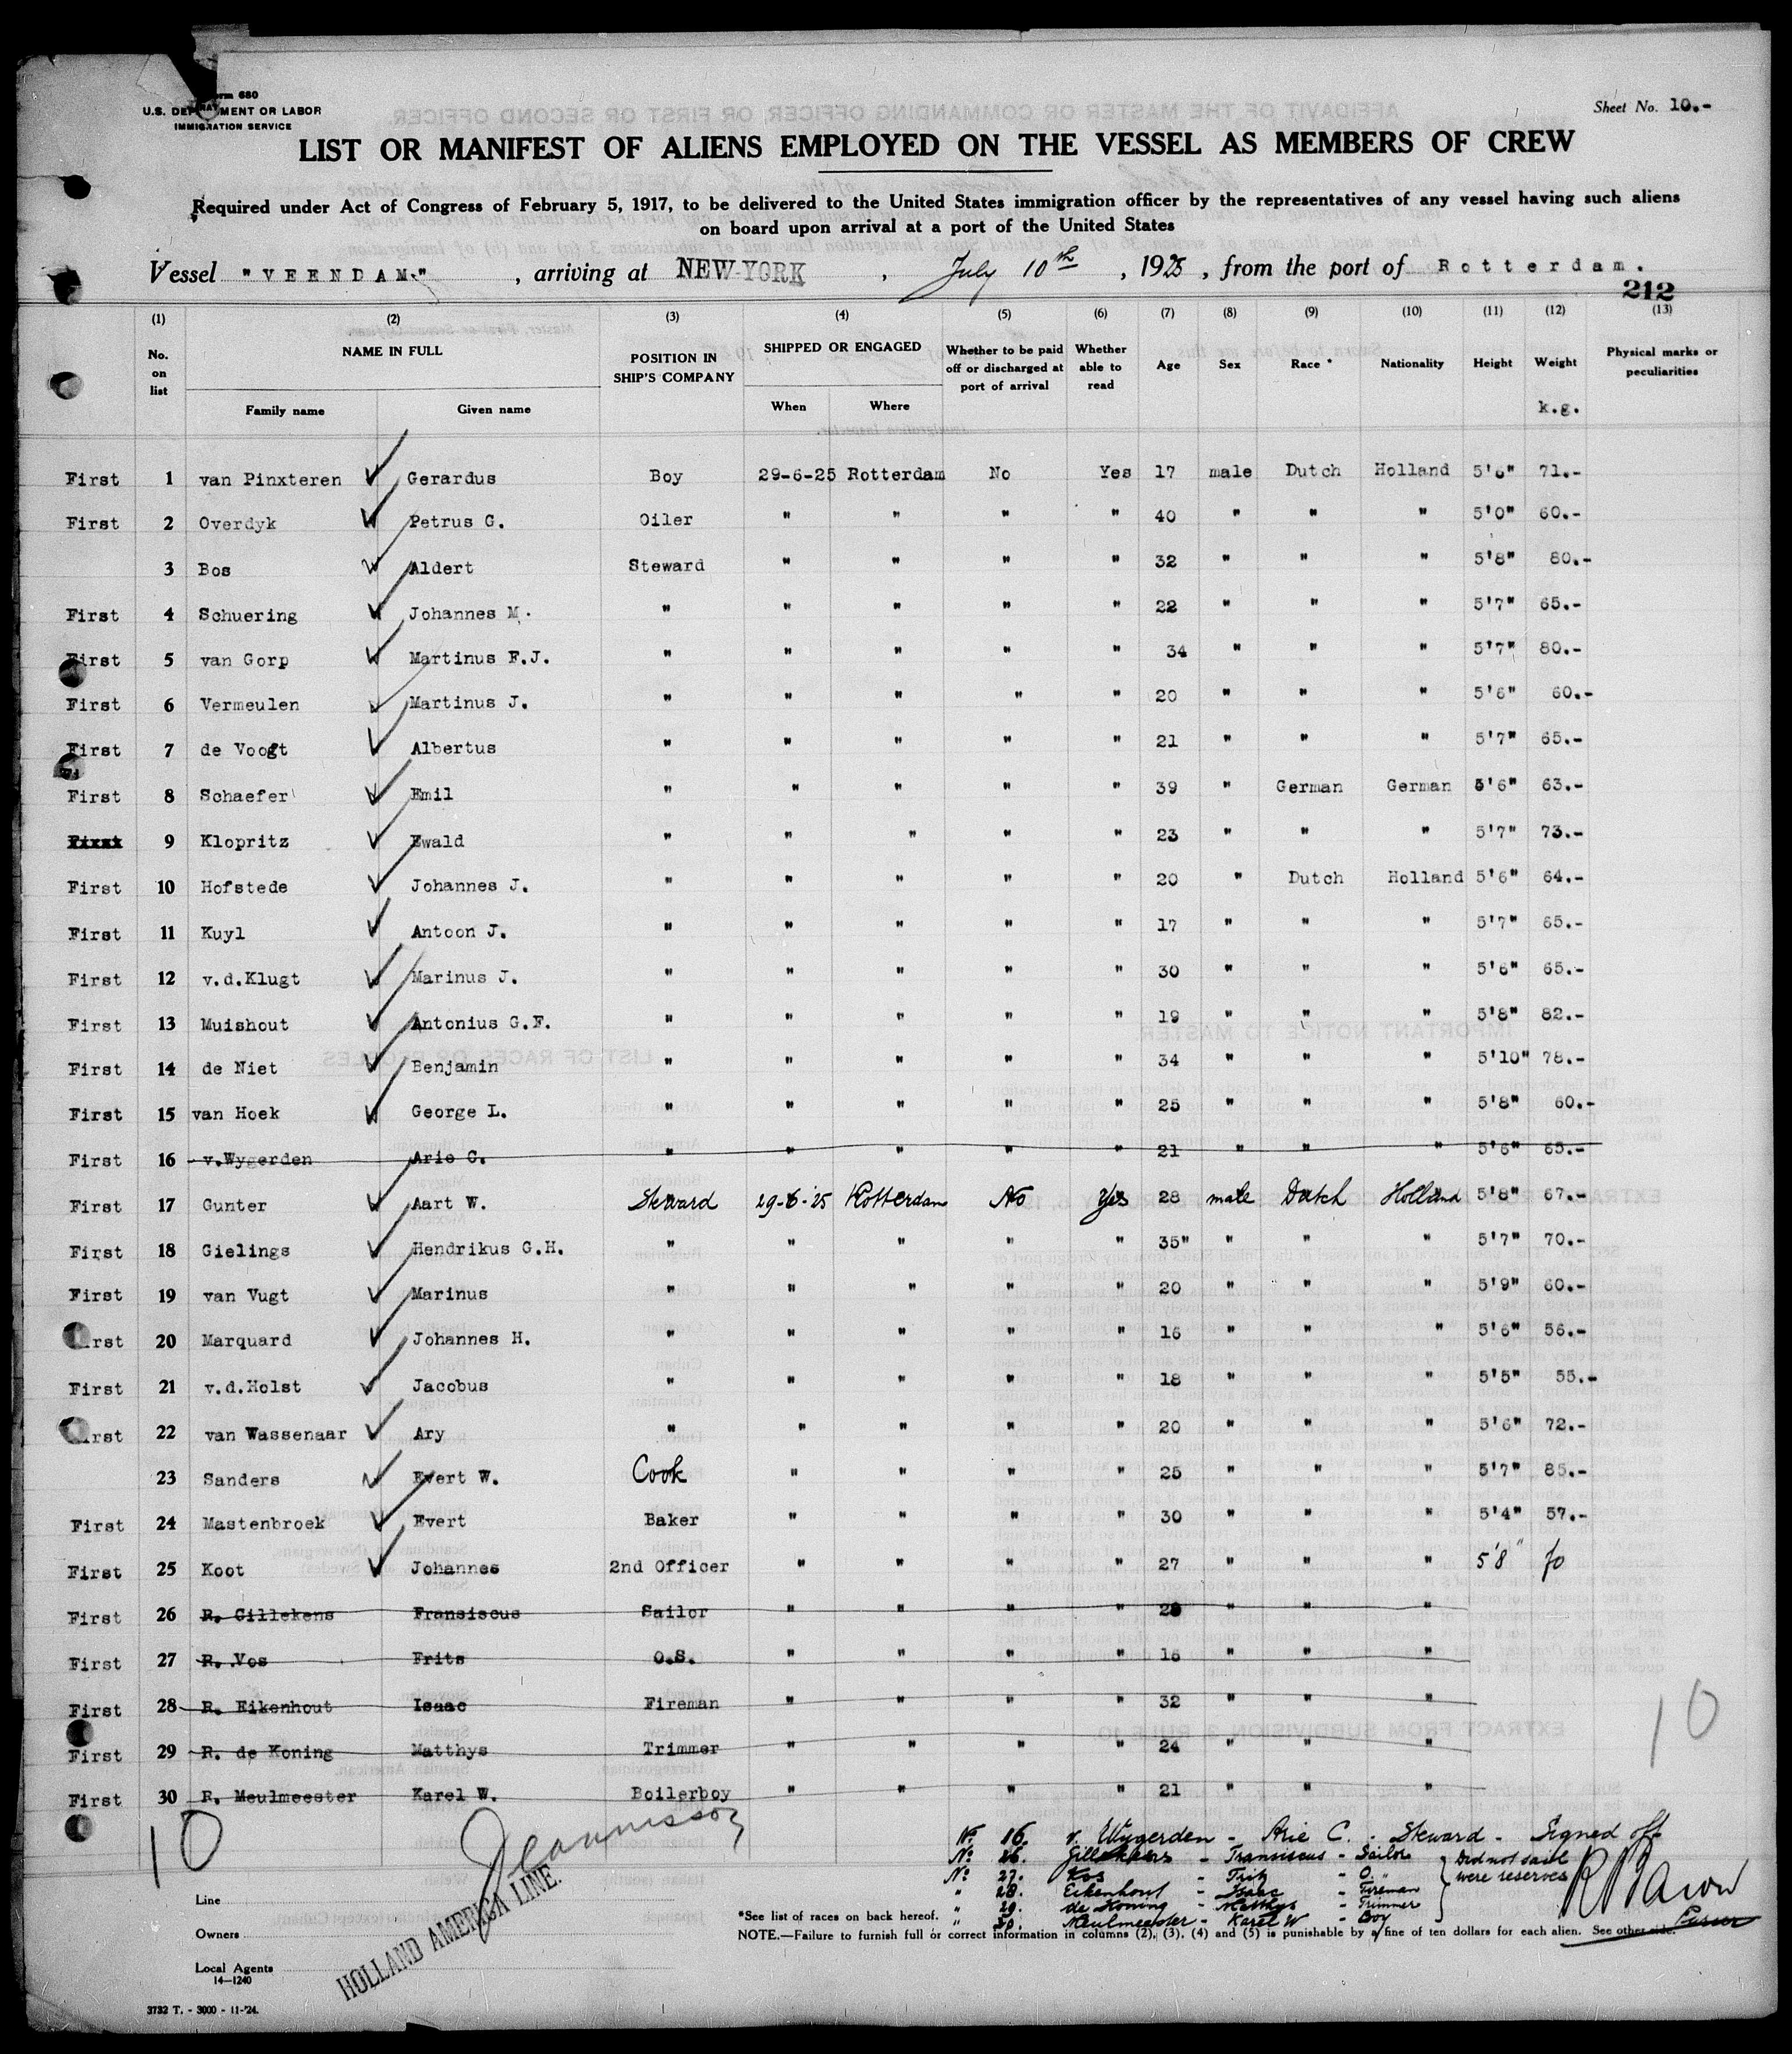 Form 680
U.S. DEPARTMENT OR LABOR
IMMIGRATION SERVICE
Sheet No. 10.-
LIST OR MANIFEST OF ALIENS EMPLOYED ON THE VESSEL AS MEMBERS OF CREW
Required under Act of Congress of February 5, 1917, to be delivered to the United States immigration officer by the representatives of any vessel having such aliens
on board upon arrival at a port of the United States
Vessel "VEENDAM." , arriving at NEW-YORK , July 10th , 1925 , from the port of Rotterdam.
212
(1) (2) (3) (4) (5) (6) (7) (8) (9) (10) (11) (12) (13)
No. on list NAME IN FULL Family name Given name POSITION IN SHIP'S COMPANY SHIPPED OR ENGAGED When Where Whether to be paid off or discharged at port of arrival Whether able to read Age Sex Race * Nationality Height Weight k.g. Physical marks or peculiarities
First 1 van Pinxteren Gerardus Boy 29-6-25 Rotterdam No Yes 17 male Dutch Holland 5'6" 71.-
First 2 Overdyk Petrus G. Oiler " " " " 40 " " " 5'0" 60.-
3 Bos Aldert Steward " " " " 32 " " " 5'8" 80.-
First 4 Schuering Johannes M. " " " " " 22 " " " 5'7" 65.-
First 5 van Gorp Martinus F.J. " " " " " 34 " " " 5'7" 80.-
First 6 Vermeulen Martinus J. " " " " " 20 " " " 5'6" 60.-
First 7 de Voogt Albertus " " " " " 21 " " " 5'7" 65.-
First 8 Schaefer Emil " " " " " 39 " German German 5'6" 63.-
First 9 Klopritz Ewald " " " " " 23 " " " 5'7" 73.-
First 10 Hofstede Johannes J. " " " " " 20 " Dutch Holland 5'6" 64.-
First 11 Kuyl Antoon J. " " " " " 17 " " " 5'7" 65.-
First 12 v.d.Klugt Marinus J. " " " " " 30 " " " 5'6" 65.-
First 13 Muishout Antonius G.F. " " " " " 19 " " " 5'8" 82.-
First 14 de Niet Benjamin " " " " " 34 " " " 5'10" 78.-
First 15 van Hoek George L. " " " " " 25 " " " 5'8" 60.-
First 16 v.Wygerden Arie C. " " " " " 21 " " " 5'6" 65.-
First 17 Gunter Aart W. Steward 29-6-25 Rotterdam No Yes 28 male Dutch Holland 5'8" 67.-
First 18 Gielings Hendrikus G.H. " " " " " 35" " " " 5'7" 70.-
First 19 van Vugt Marinus " " " " " 20 " " " 5'9" 60.-
First 20 Marquard Johannes H. " " " " " 16 " " " 5'6" 56.-
First 21 v.d.Holst Jacobus " " " " " 18 " " " 5'5" 55.-
First 22 van Wassenaar Ary " " " " " 20 " " " 5'6" 72.-
23 Sanders Evert W. Cook " " " " 25 " " " 5'7" 85.-
First 24 Mastenbroek Evert Baker " " " " 30 " " " 5'4" 57.-
First 25 Koot Johannes 2nd Officer " " " " 27 " " " 5'8" 70
First 26 R. Gillekens Fransiscus Sailor " " " " " " "
First 27 R. Vos Frits O.S. " " " " 16 " " "
First 28 R. Eikenhout Isaac Fireman " " " " 32 " " "
First 29 R. de Koning Matthys Trimmer " " " " 24 " " "
First 30 R. Meulmeester Karel W. Boilerboy " " " " 21 " " "
10
10
No. 16. v. Wygerden - Arie C. - Steward - Signed off
No. 26. Gillekens - Fransiscus - Sailor } Did not sail
No. 27. Vos - Frits - O. " were reserves
" 28. Eikenhout - Isaac - Fireman
" 29. de Koning - Matthys - Trimmer
" 30. Meulmeester - Karel W - Boy
Purser
Line
Owners
Local Agents
14—1240
HOLLAND AMERICA LINE.
*See list of races on back hereof.
NOTE.—Failure to furnish full or correct information in columns (2), (3), (4) and (5) is punishable by a fine of ten dollars for each alien. See other side.
3732 T. - 3000 - 11-'24.